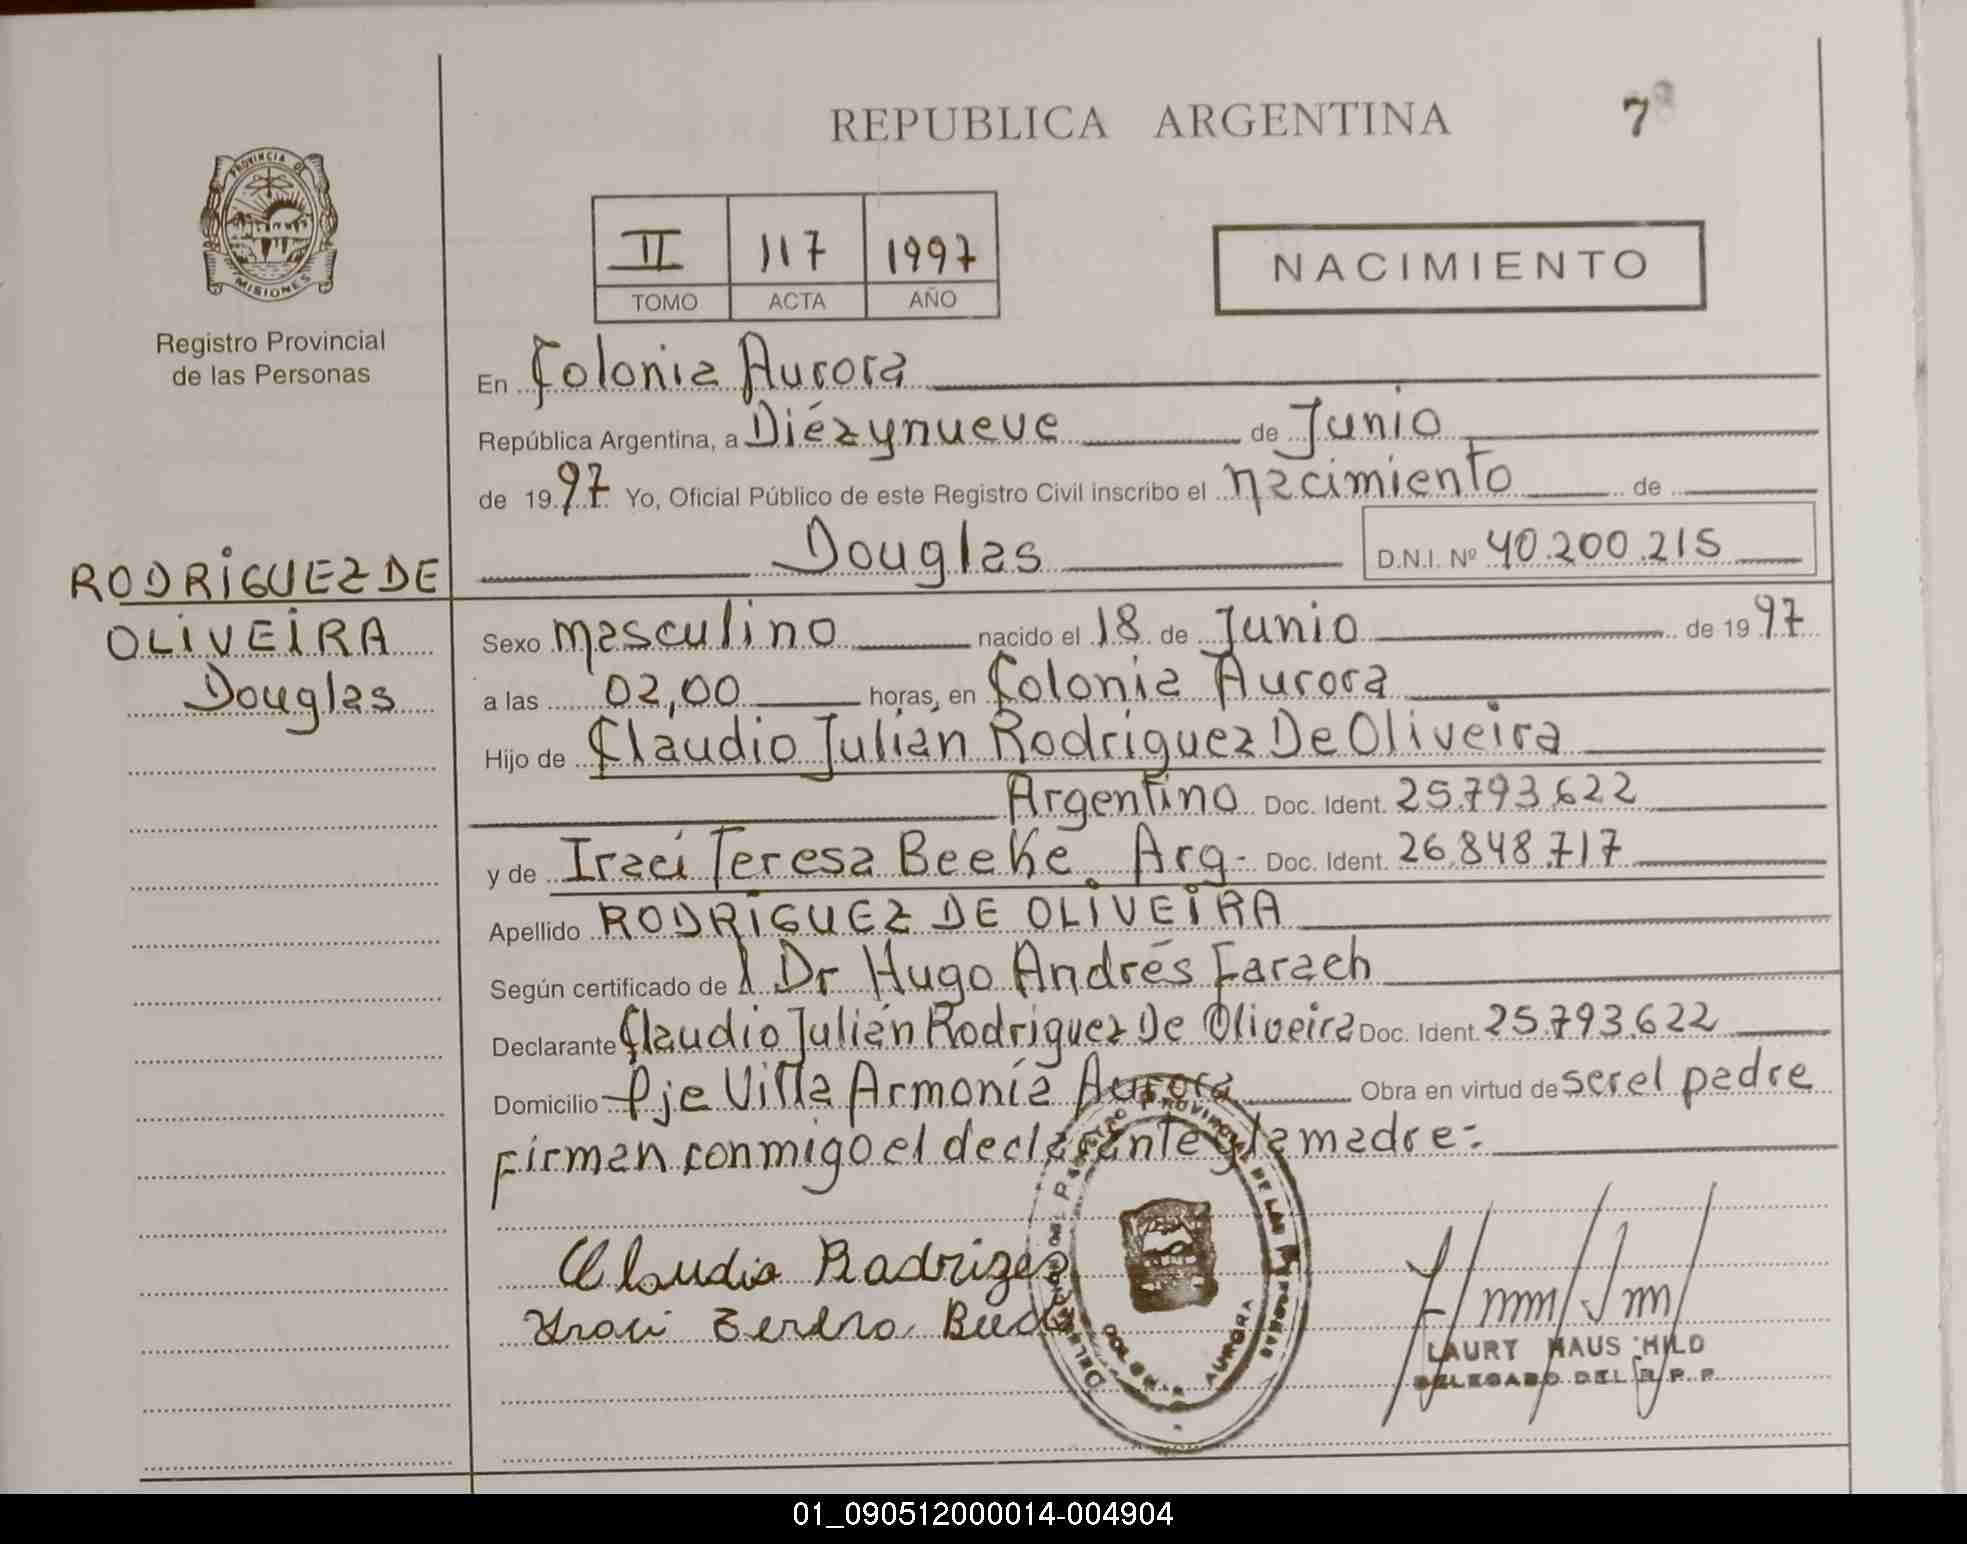 REPUBLICA ARGENTINA
7
PROVINCIA DE
MISIONES
Registro Provincial
de las Personas
II 117 1997
TOMO ACTA AÑO
NACIMIENTO
En Colonia Aurora
República Argentina, a Diézynueve de Junio
de 1997 Yo, Oficial Público de este Registro Civil inscribo el nacimiento de
Douglas D.N.I. Nº 40.200.215
RODRIGUEZ DE
OLIVEIRA
Douglas
Sexo masculino nacido el 18 de Junio de 1997
a las 02,00 horas, en Colonia Aurora
Hijo de Claudio Julián Rodriguez De Oliveira
Argentino Doc. Ident. 25.793.622
y de Iraci Teresa Beeke Arg- Doc. Ident. 26.848.717
Apellido RODRIGUEZ DE OLIVEIRA
Según certificado de l Dr Hugo Andrés Farach
Declarante Claudio Julián Rodriguez De Oliveira Doc. Ident. 25.793.622
Domicilio Pje Villa Armonía Aurora Obra en virtud de ser el padre
Firman conmigo el declarante y la madre=
Claudio Rodriguez
Iraci Teresa
AURORA
LAURY HAUS HILD
DELEGADO DEL R.P.P.
01_090512000014-004904